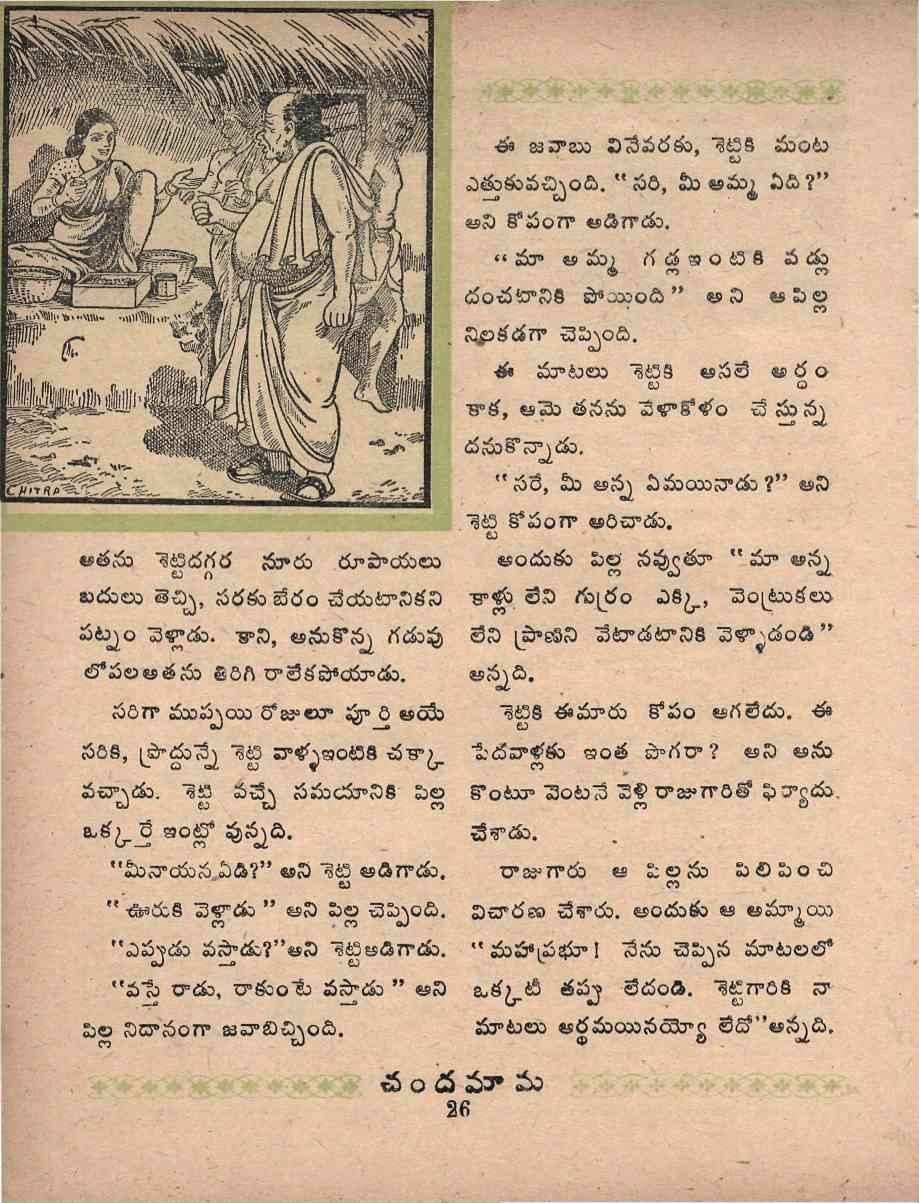 CHITRA
అతను శెట్టిదగ్గర నూరు రూపాయలు
బదులు తెచ్చి, సరకు బేరం చేయటానికని
పట్నం వెళ్లాడు. కాని, అనుకొన్న గడువు
లోపల అతను తిరిగి రాలేకపోయాడు.
సరిగా ముప్పయి రోజులూ పూర్తి అయే
సరికి, ప్రొద్దున్నే శెట్టి వాళ్ళఇంటికి చక్కా
వచ్చాడు. శెట్టి వచ్చే సమయానికి పిల్ల
ఒక్కర్తే ఇంట్లో వున్నది.
“మీనాయన ఏడి?” అని శెట్టి అడిగాడు.
“ఊరుకి వెళ్లాడు” అని పిల్ల చెప్పింది.
“ఎప్పుడు వస్తాడు?” అని శెట్టిఅడిగాడు.
“వస్తే రాడు, రాకుంటే వస్తాడు” అని
పిల్ల నిదానంగా జవాబిచ్చింది.
ఈ జవాబు వినేవరకు, శెట్టికి మంట
ఎత్తుకువచ్చింది. “సరి, మీ అమ్మ ఏది?”
అని కోపంగా అడిగాడు.
“మా అమ్మ గడ్లఇంటికి వడ్లు
దంచటానికి పోయింది” అని ఆపిల్ల
నిలకడగా చెప్పింది.
ఈ మాటలు శెట్టికి అసలే అర్ధం
కాక, ఆమె తనను వేళాకోళం చేస్తున్న
దనుకొన్నాడు.
“సరే, మీ అన్న ఏమయినాడు?” అని
శెట్టి కోపంగా అరిచాడు.
అందుకు పిల్ల నవ్వుతూ “మా అన్న
కాళ్లు లేని గుర్రం ఎక్కి, వెంట్రుకలు
లేని ప్రాణిని వేటాడటానికి వెళ్ళాడండి”
అన్నది.
శెట్టికి ఈమారు కోపం ఆగలేదు. ఈ
పేదవాళ్లకు ఇంత పొగరా? అని అను
కొంటూ వెంటనే వెళ్లి రాజుగారితో ఫిర్యాదు
చేశాడు.
రాజుగారు ఆ పిల్లను పిలిపించి
విచారణ చేశారు. అందుకు ఆ అమ్మాయి
“మహాప్రభూ! నేను చెప్పిన మాటలలో
ఒక్కటీ తప్పు లేదండి. శెట్టిగారికి నా
మాటలు అర్థమయినయ్యో లేదో” అన్నది.
చందమామ
26